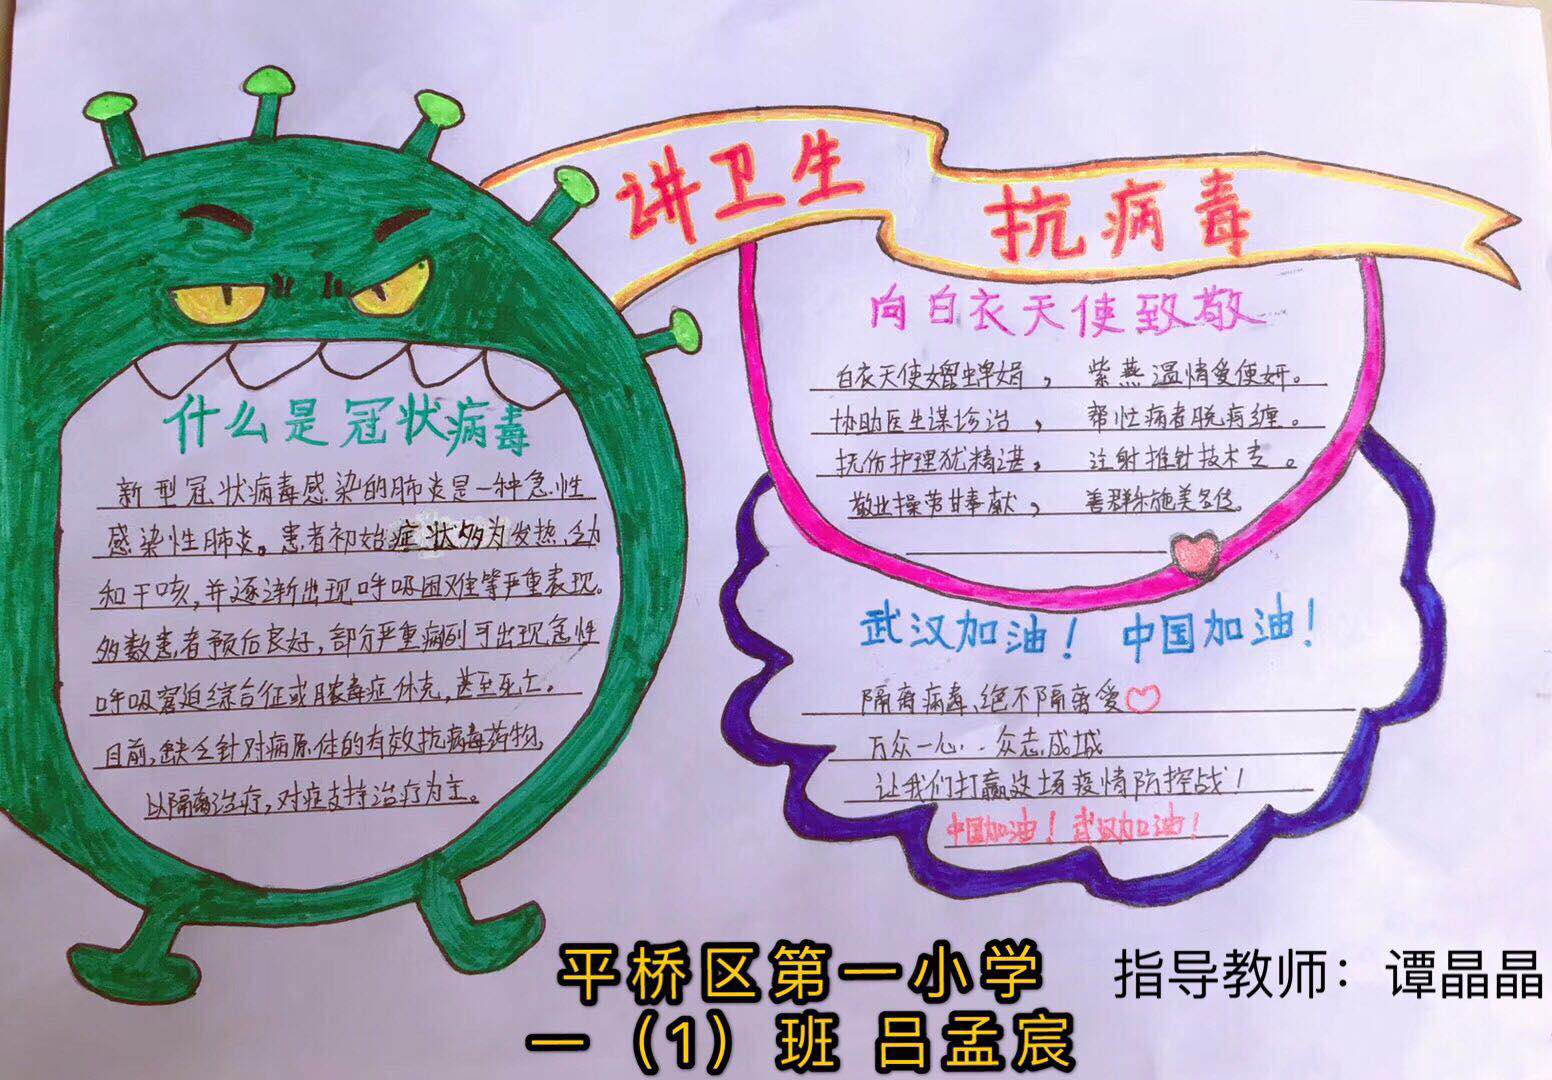 讲卫生 抗病毒
什么是冠状病毒
新型冠状病毒感染的肺炎是一种急性
感染性肺炎。患者初始症状多为发热、乏力
和干咳,并逐渐出现呼吸困难等严重表现。
多数患者预后良好,部分严重病列可出现急性
呼吸窘迫综合征或脓毒症休克,甚至死亡。
目前,缺乏针对病原体的有效抗病毒药物,
以隔离治疗,对症支持治疗为主。
向白衣天使致敬
白衣天使嫦蝉娟, 紫燕温情爱便妍。
协助医生谋诊治, 帮忙病者脱病缠。
抚伤护理犹精湛, 注射推针技术专。
敬业操劳甘奉献, 善群乐施美名传。
武汉加油! 中国加油!
隔离病毒、绝不隔离爱
万众一心..众志成城
让我们打赢这场疫情防控战!
中国加油! 武汉加油!
平桥区第一小学
一(1)班 吕孟宸
指导教师:谭晶晶